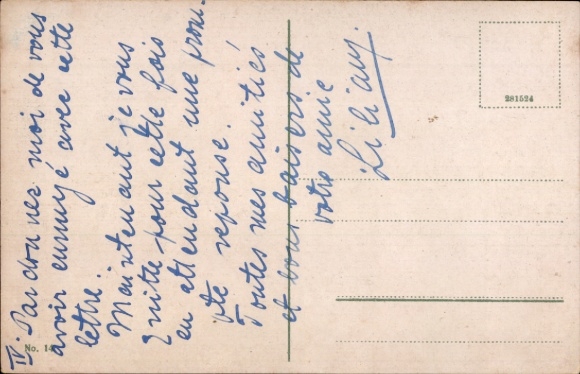 IV. Pardonnez moi de vous
avoir ennuyé avec cette
lettre.
Maintenant je vous
quitte pour cette fois
en attendant une prom-
pte reponse.
Toutes mes amitiés
et bons baisers de
votre amie
Liliany.
No.
281524